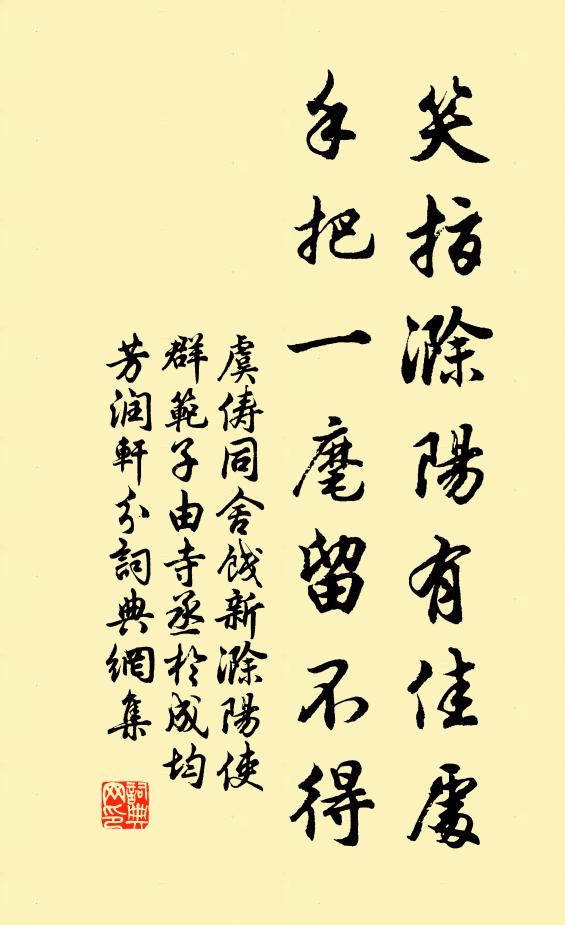 笑指滁陽有佳處
手把一麾留不得
虞儔同舍餞新滁陽使
群範子由寺丞於成均
芳潤軒分詞典網集
詞典網印